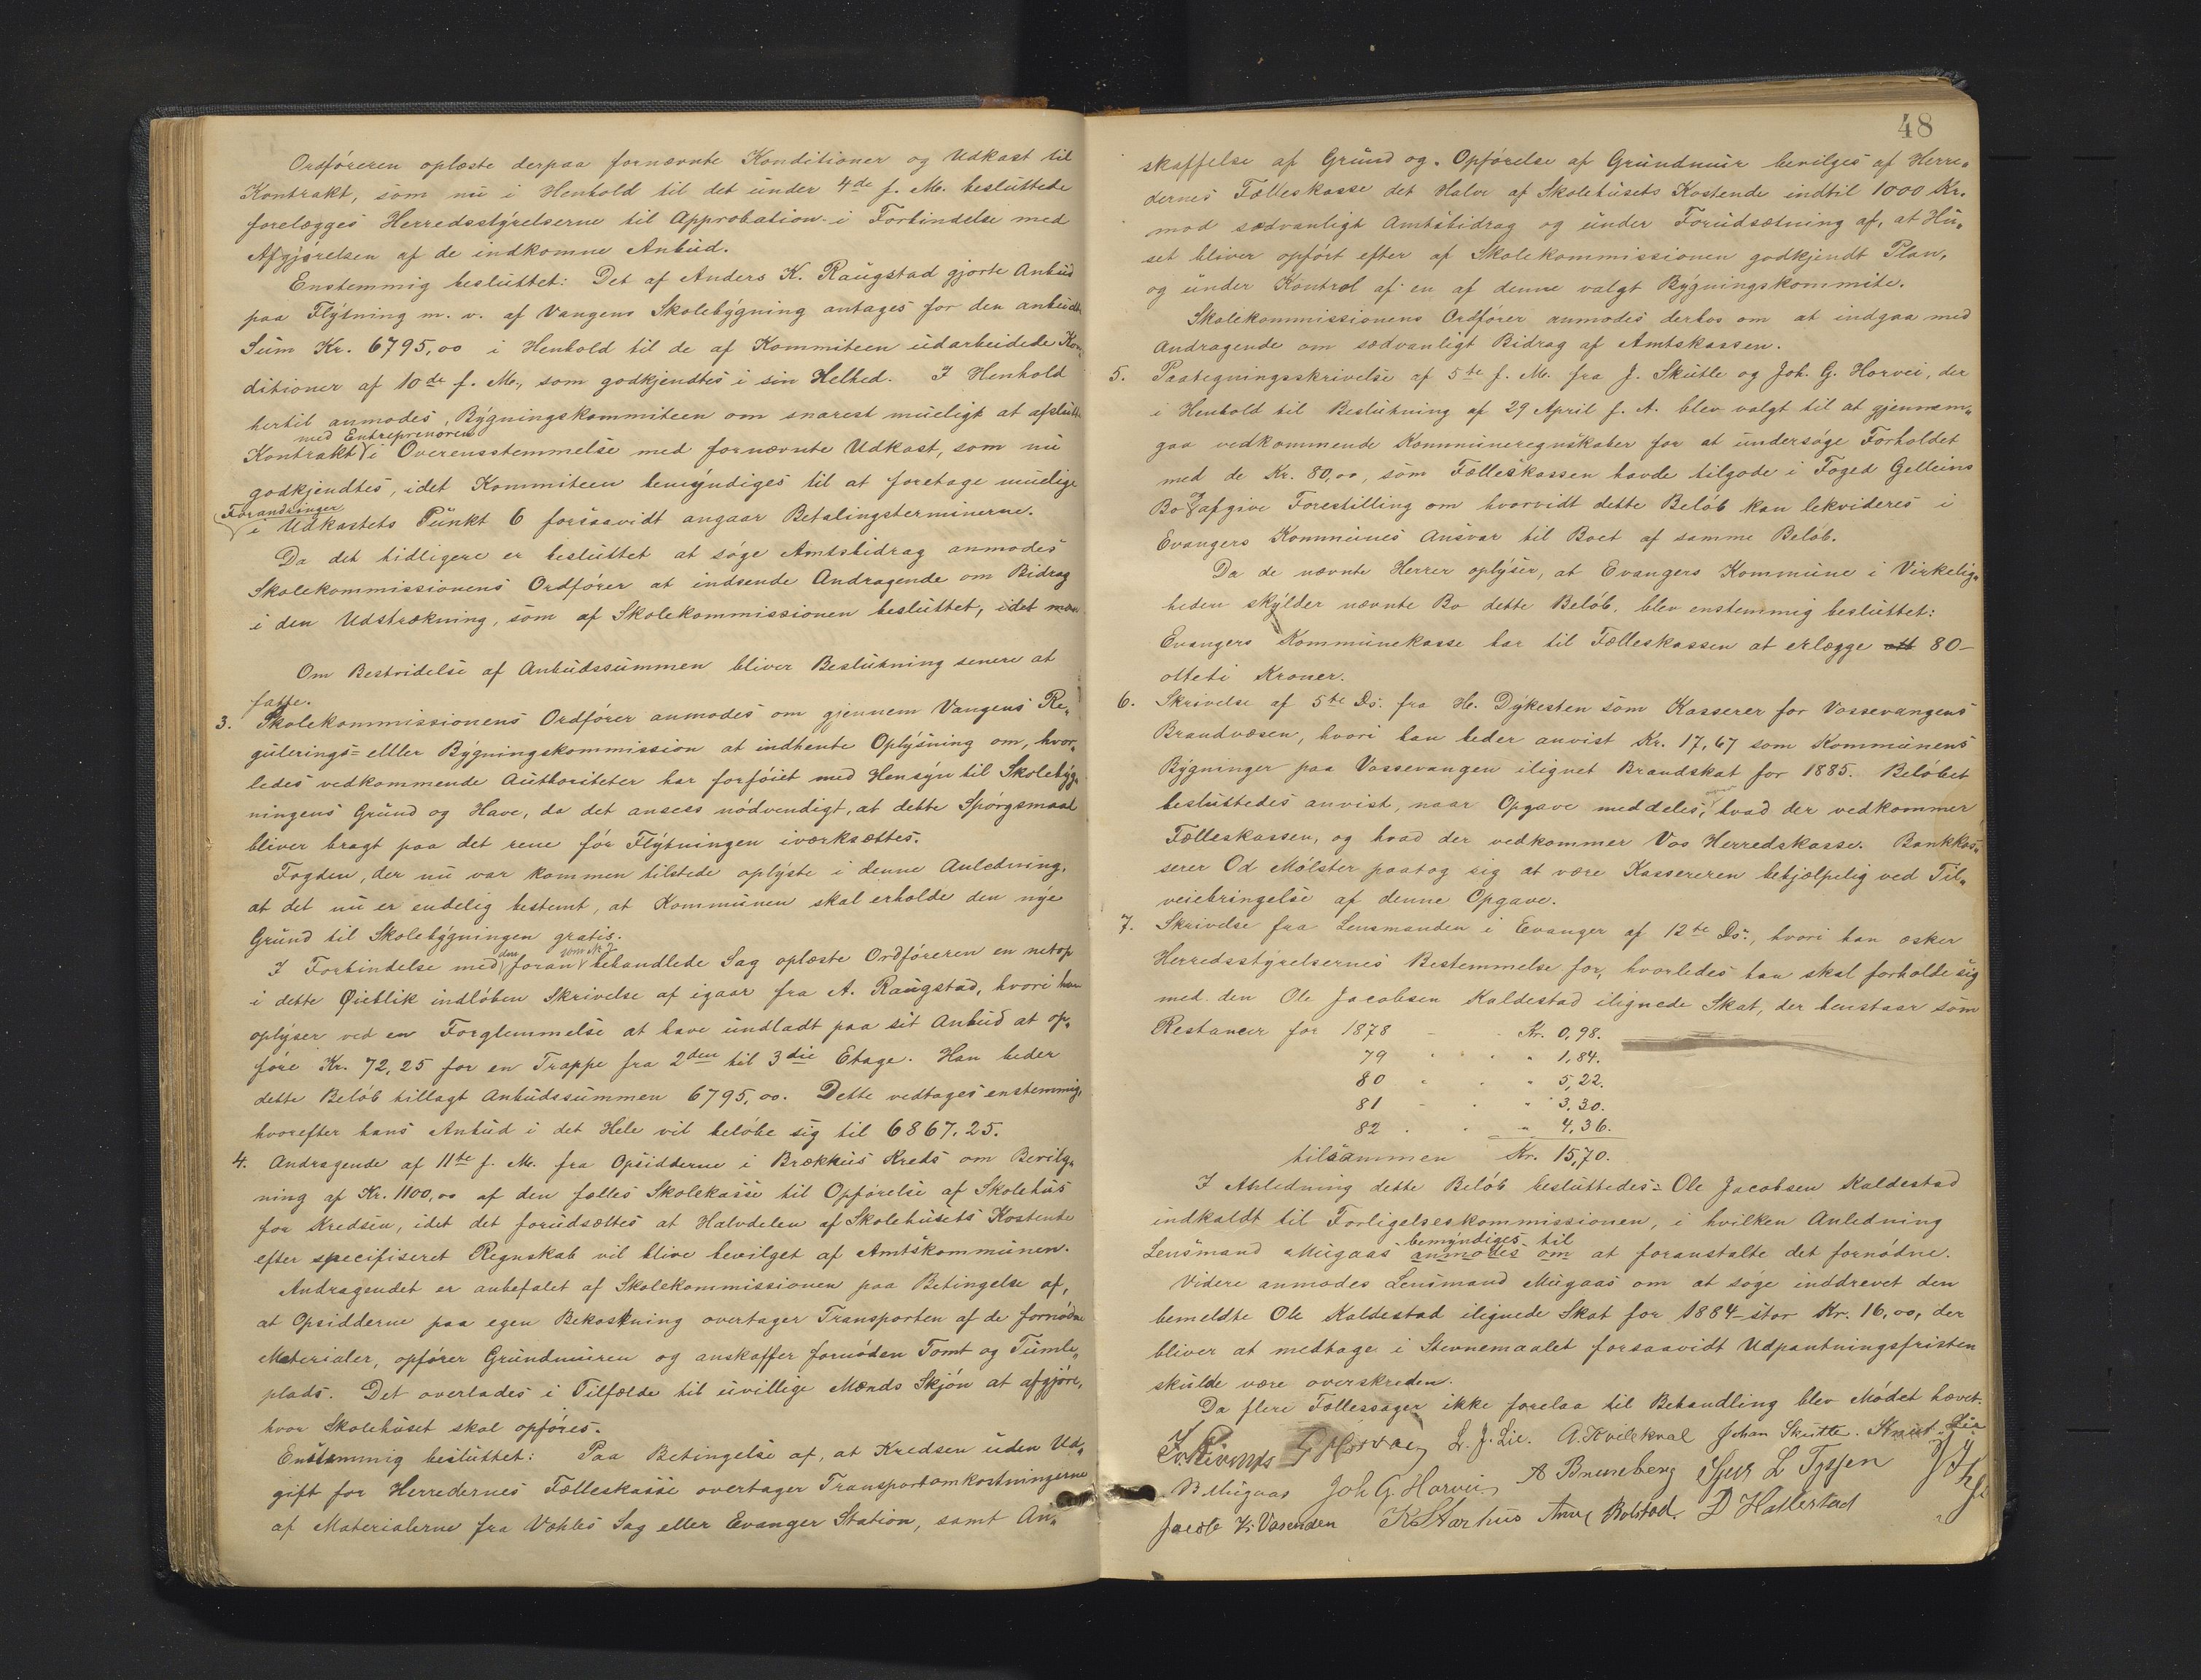 Ordføreren oplæste derpaa fornævnte Konditioner og Udkast til
Kontrakt, som nu i Henhold til det under 4de f. M. besluttede
forelægges Herredsstyrelserne til Approbation i Forbindelse med
Afgjørelsen af de indkomne Anbud.
Enstemmig besluttet: Det af Anders K. Raugstad gjorte Anbud
paa Flytning m. v. af Vangens Skolebygning antages for den anbudte
Sum Kr. 6795,00 i Henhold til de af Kommiteen udarbeidede Kon-
ditioner af 10de f. M., som godkjendtes i sin Helhed. I Henhold
hertil anmodes Bygningskommiteen om snarest mueligt at afslutte
med Entreprenøren
Kontrakt i Overensstemmelse med fornævnte Udkast, som nu
godkjendtes, idet Kommiteen bemyndiges til at foretage muelige
Forandringer
i Udkastets Punkt 6 forsaavidt angaar Betalingsterminerne.
Da det tidligere er besluttet at søge Amtsbidrag anmodes
Skolekommissionens Ordfører at indsende Andragende om Bidrag
i den Udstrækning, som af Skolekommissionen besluttet, idet man
Om Bestridelse af Anbudssummen bliver Beslutning senere at
fatte.
3. Skolekommissionens Ordfører anmodes om gjennem Vangens Re-
gulerings= elller Bygningskommission at indhente Oplysning om, hvor-
ledes vedkommende Authoriteter har forføiet med Hensyn til Skolebyg-
ningens Grund og Have, da det ansees nødvendigt, at dette Spørgsmaal
bliver bragt paa det rene før Flytningen iværksættes.
Fogden, der nu var kommen tilstede oplyste i denne Anledning,
at det nu er endelig bestemt, at Kommunen skal erholde den nye
Grund til Skolebygningen gratis.
den som No 2
I Forbindelse med foran behandlede Sag oplæste Ordføreren en netop
i dette Øieblik indløben Skrivelse af igaar fra A. Raugstad, hvori han
oplyser ved en Forglemmelse at have undladt paa sit Anbud at op-
føre Kr. 72,25 for en Trappe fra 2den til 3die Etage. Han beder
dette Beløb tillagt Anbudssummen 6795,00. Dette vedtages enstemmig,
hvorefter hans Anbud i det Hele vil beløbe sig til 6867,25.
4. Andragende af 11te f. M. fra Opsidderne i Brækkus Kreds om Bevilg-
ning af Kr. 1100,00 af den fælles Skolekasse til Opførelse af Skolehus
for Kredsen, idet det forudsættes at Halvdelen af Skolehusets Kostende
efter specifiseret Regnskab vil blive bevilget af Amtskommunen.
Andragendet er anbefalet af Skolekommissionen paa Betingelse af,
at Opsidderne paa egen Bekostning overtager Transporten af de fornødne
Materialer, opfører Grundmuren og anskaffer fornøden Tomt og Tumle-
plads. Det overlades i Tilfælde til uvillige Mænds Skjøn at afgjøre,
hvor Skolehuset skal opføres.
Enstemmig besluttet: Paa Betingelse af, at Kredsen uden Ud-
gift for Herredernes Fælleskasse overtager Transportomkostningerne
af Materialerne fra Vohles Sag eller Evanger Station, samt An-
48
skaffelse af Grund og Opførelse af Grundmur bevilges af Herre-
dernes Fælleskasse det Halve af Skolehusets Kostende indtil 1000 Kr.
mod sædvanligt Amtsbidrag og under Forudsætning af, at Hu-
set bliver opført efter af Skolekommissionen godkjendt Plan,
og under Kontrol af en af denne valgt Bygningskommite.
Skolekommissionens Ordfører anmodes derhos om at indgaa med
Andragende om sædvanligt Bidrag af Amtskassen.
5. Paategningsskrivelse af 5te f. M. fra J. Skutle og Joh. G. Horvei, der
i Henhold til Beslutning af 29 April f. A. blev valgt til at gjennem-
gaa vedkommende Kommuneregnskaber for at undersøge Forholdet
med de Kr. 80,00, som Fælleskassen havde tilgode i Foged Gelleins
Bo og afgive Forestilling om hvorvidt dette Beløb kan lekvideres i
Evangers Kommunes Ansvar til Boet af samme Beløb.
Da de nævnte Herrer oplyser, at Evangers Kommune i Virkelig-
heden skylder nævnte Bo dette Beløb, blev enstemmig besluttet:
Evangers Kommunekasse har til Fælleskassen at erlægge ott 80-
otteti Kroner.
6. Skrivelse af 5te Ds. fra H. Dykesten som Kasserer for Vossevangens
Brandvæsen, hvori han beder anvist Kr. 17,67 som Kommunens
Bygninger paa Vossevangen ilignet Brandskat for 1885. Beløbet
besluttedes anvist, naar Opgave meddeles, over hvad der vedkommer
Fælleskassen, og hvad der vedkommer Vos Herredskasse. Bankkas-
serer Od Mølster paatog sig at være Kassereren behjælpelig ved Til-
veiebringelse af denne Opgave.
7. Skrivelse fra Lensmanden i Evanger af 12te Ds., hvori han æsker
Herredsstyrelsernes Bestemmelse for, hvorledes han skal forholde sig
med den Ole Jacobsen Kaldestad ilignede Skat, der henstaar som
Restancer for 1878 - - Kr. 0,98.
79 " " " " 1,84.
80 " " " " 5,22.
81 - " " 3,30.
82 . " " 4,36.
tilsammen Kr. 15,70.
I Anledning dette Beløb besluttedes: Ole Jacobsen Kaldestad
indkaldt til Forligelseskommissionen, i hvilken Anledning
bemyndiges til
Lensmand Mugaas anmodes om at foranstalte det fornødne.
Videre anmodes Lensmand Mugaas om at søge inddrevet den
bemeldte Ole Kaldestad ilignede Skat for 1884 stor Kr. 16,00, der
bliver at medtage i Stevnemaalet forsaavidt Udpantningsfristen
skulde være overskreden.
Da flere Fællessager ikke forelaa til Behandling blev Mødet hævet.
L. J. Lie. A. Kvilekval Johan Skutle. Knut Lie
B Mugaas Joh G. Horvei A Brunsberg Sjur L Tyssen
Jacob K. Vasenden K Starhus Arne Bolstad. D Hallestad